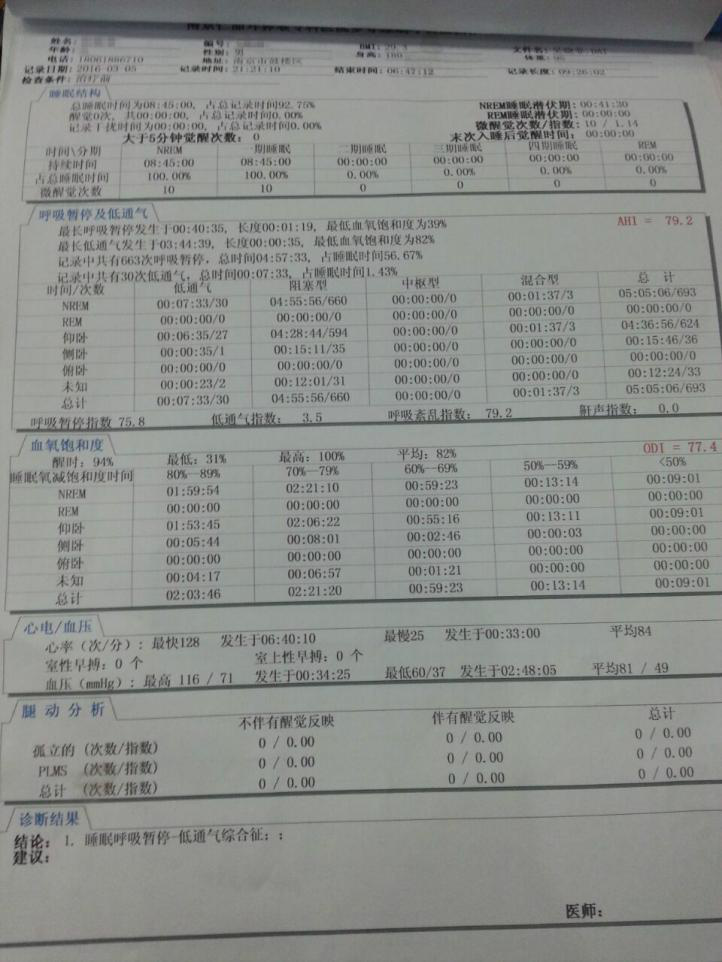 姓名: 编号: BMI: 29.3 文件名:
年龄: 性别: 男 身高: 180 体重: 95
电话: 18061886710 地址: 南京市鼓楼区
记录日期: 2016-03-05 记录时间: 21:21:10 结束时间: 06:47:12 记录长度: 09:26:02
检查条件: 治疗前
睡眠结构
总睡眠时间为08:45:00, 占总记录时间92.75% NREM睡眠潜伏期: 00:41:30
醒觉0次, 共00:00:00, 占总记录时间0.00% REM睡眠潜伏期: 00:00:00
记录干扰时间为00:00:00, 占总记录时间0.00% 微醒觉次数/指数: 10 / 1.14
大于5分钟觉醒次数: 0 末次入睡后觉醒时间: 00:00:00
时间\分期 NREM 一期睡眠 二期睡眠 三期睡眠 四期睡眠 REM
持续时间 08:45:00 08:45:00 00:00:00 00:00:00 00:00:00 00:00:00
占总睡眠时间 100.00% 100.00% 0.00% 0.00% 0.00% 0.00%
微醒觉次数 10 10 0 0 0 0
呼吸暂停及低通气
最长呼吸暂停发生于00:40:35, 长度00:01:19, 最低血氧饱和度为39% AHI = 79.2
最长低通气发生于03:44:39, 长度00:00:35, 最低血氧饱和度为82%
记录中共有663次呼吸暂停, 总时间04:57:33, 占睡眠时间56.67%
记录中共有30次低通气, 总时间00:07:33, 占睡眠时间1.43%
时间/次数 低通气 阻塞型 中枢型 混合型 总 计
NREM 00:07:33/30 04:55:56/660 00:00:00/0 00:01:37/3 05:05:06/693
REM 00:00:00/0 00:00:00/0 00:00:00/0 00:00:00/0 00:00:00/0
仰卧 00:06:35/27 04:28:44/594 00:00:00/0 00:01:37/3 04:36:56/624
侧卧 00:00:35/1 00:15:11/35 00:00:00/0 00:00:00/0 00:15:46/36
俯卧 00:00:00/0 00:00:00/0 00:00:00/0 00:00:00/0 00:00:00/0
未知 00:00:23/2 00:12:01/31 00:00:00/0 00:00:00/0 00:12:24/33
总计 00:07:33/30 04:55:56/660 00:00:00/0 00:01:37/3 05:05:06/693
呼吸暂停指数 75.8 低通气指数: 3.5 呼吸紊乱指数: 79.2 鼾声指数: 0.0
血氧饱和度
醒时: 94% 最低: 31% 最高: 100% 平均: 82% ODI = 77.4
睡眠氧减饱和度时间 80%—89% 70%—79% 60%—69% 50%—59% <50%
NREM 01:59:54 02:21:10 00:59:23 00:13:14 00:09:01
REM 00:00:00 00:00:00 00:00:00 00:00:00 00:00:00
仰卧 01:53:45 02:06:22 00:55:16 00:13:11 00:09:01
侧卧 00:05:44 00:08:01 00:02:46 00:00:03 00:00:00
俯卧 00:00:00 00:00:00 00:00:00 00:00:00 00:00:00
未知 00:04:17 00:06:57 00:01:21 00:00:00 00:00:00
总计 02:03:46 02:21:20 00:59:23 00:13:14 00:09:01
心电/血压
心率(次/分): 最快128 发生于06:40:10 最慢25 发生于00:33:00 平均84
室性早搏: 0 个 室上性早搏: 0 个
血压(mmHg): 最高 116 / 71 发生于00:34:25 最低60/37 发生于02:48:05 平均81 / 49
腿动分析
不伴有醒觉反映 伴有醒觉反映 总计
孤立的 (次数/指数) 0 / 0.00 0 / 0.00 0 / 0.00
PLMS (次数/指数) 0 / 0.00 0 / 0.00 0 / 0.00
总计 (次数/指数) 0 / 0.00 0 / 0.00 0 / 0.00
诊断结果
结论: 1. 睡眠呼吸暂停-低通气综合征; ;
建议:
医师: